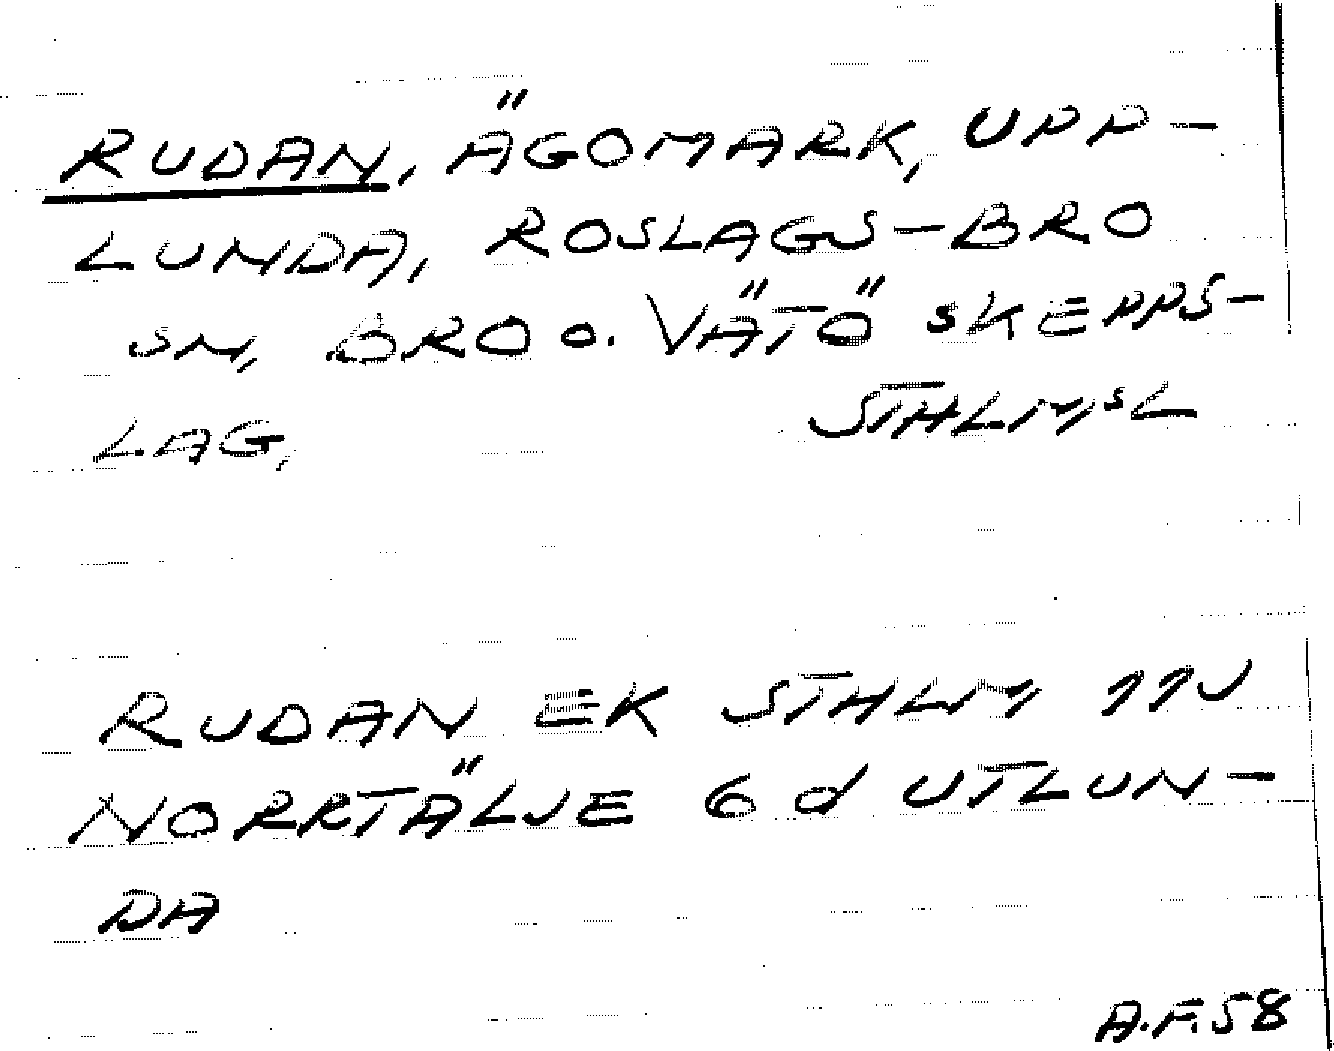 RUDAN, ÄGOMARK, UPP-
LUNDA, ROSLAGS-BRO
SN, BRO O. VÄTÖ SKEPPS-
LAG, STHLMSL
RUDAN EK STHLM 11V
NORRTÄLJE 6 d UTLUN-
DA
A.F.58